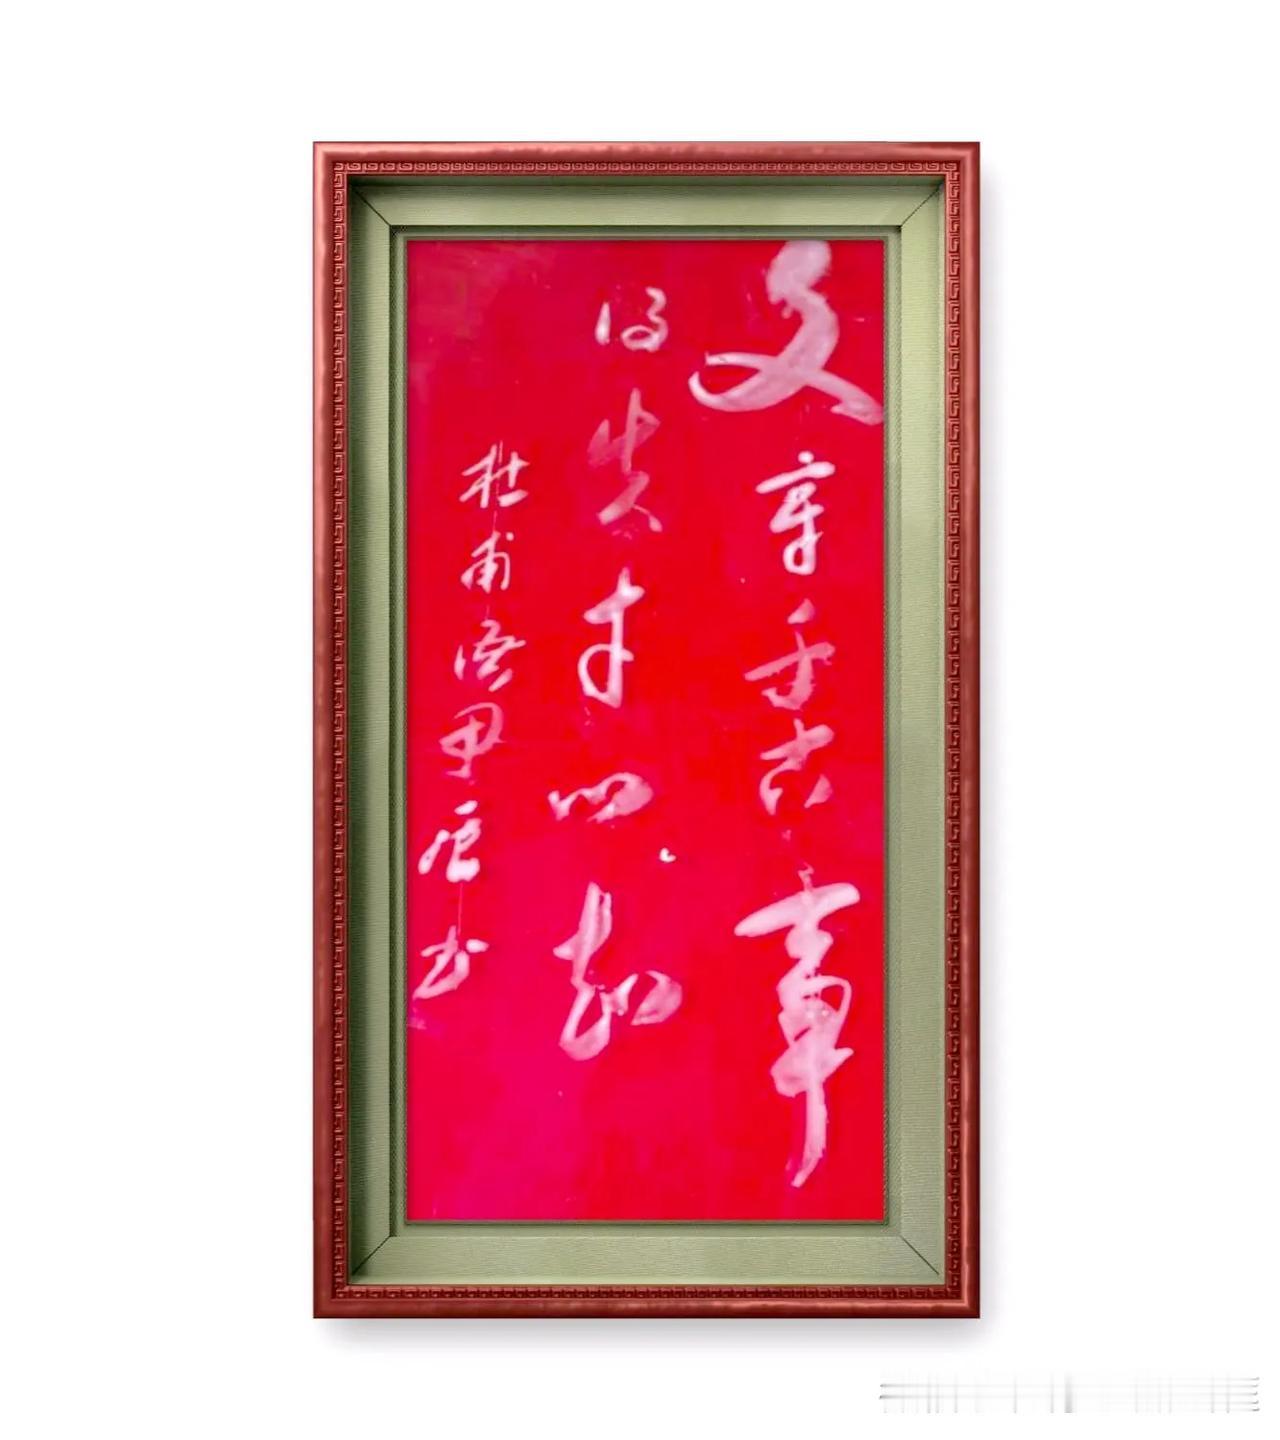 文章千古事
得失寸心知
杜甫语甲辰书